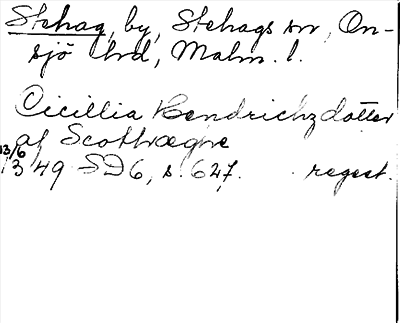 Stehag, by, Stehags sn, On-
sjö hrd, Malm. l.
Cicillia Hendrichzdotter
af Scottwegne
13/6
1349 SD6, s. 627. regest.